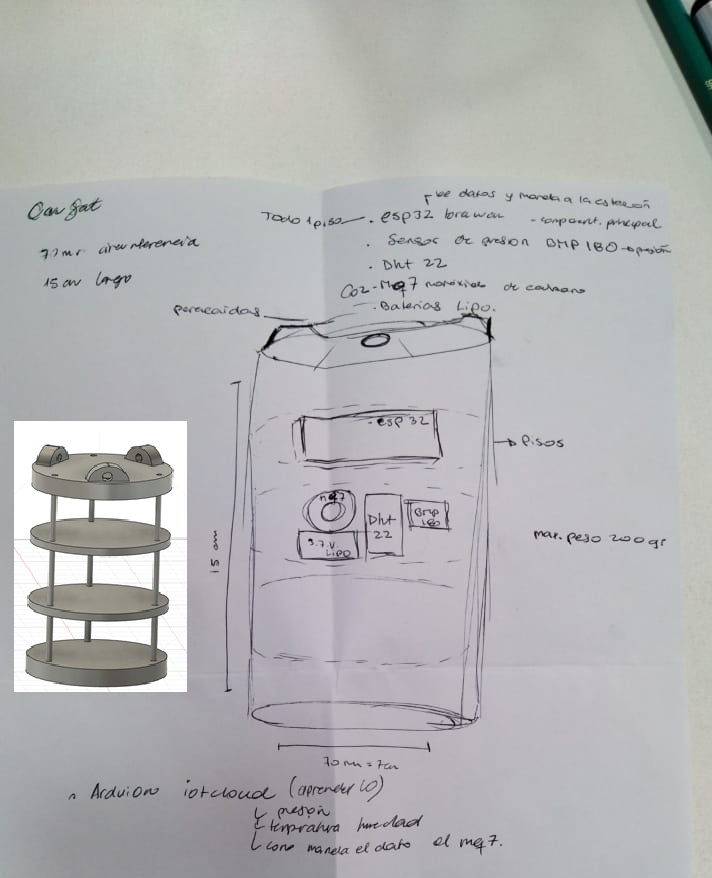 Can Sat
circunferencia
15 cm largo
be datos y manda a la estación
Todo 1 piso
. esp 32 lorawan - component. principal
. Sensor de presion BMP 180 → presión
. Dht 22
Co2 - Mq7 monóxido de carbono
. Baterias Lipo.
paracaidas
- esp 32
→ Pisos
mq7
Dht 22
Bmp 180
3.7 V. Lipo
15 cm
max. peso 200 gr
70 mm = 7cm
Arduino iot cloud (aprenderlo)
presión
temperatura humedad
como manda el dato el mq7.